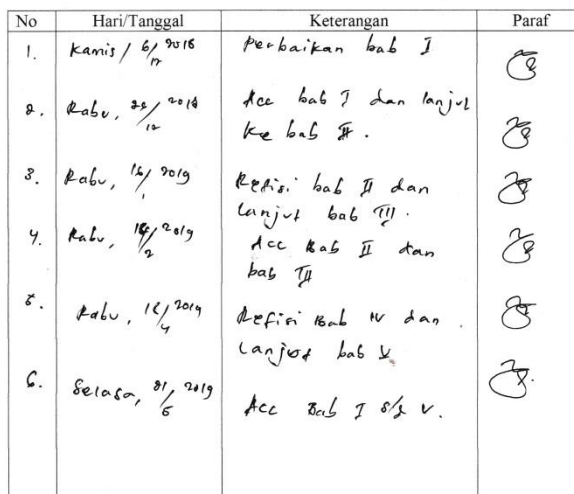 No Hari/Tanggal Keterangan Paraf
1. Kamis / 6/12 2018 Perbaikan bab I
2. Rabu, /12 2018 Acc bab I dan lanjut
ke bab II.
3. Rabu, 16/1 2019 Refisi bab II dan
lanjut bab III.
4. Rabu, /2 2019 Acc Bab II dan
bab III
5. Rabu, /4 2019 Refisi Bab IV dan
lanjut bab V
6. Selasa, /5 2019 Acc Bab I s/d V.